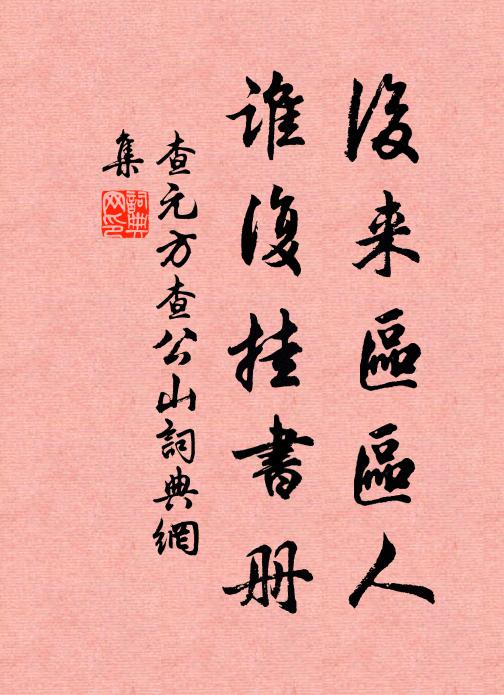 後来區區人
誰復挂書册
查元方查公山詞典網
集
詞典
网印